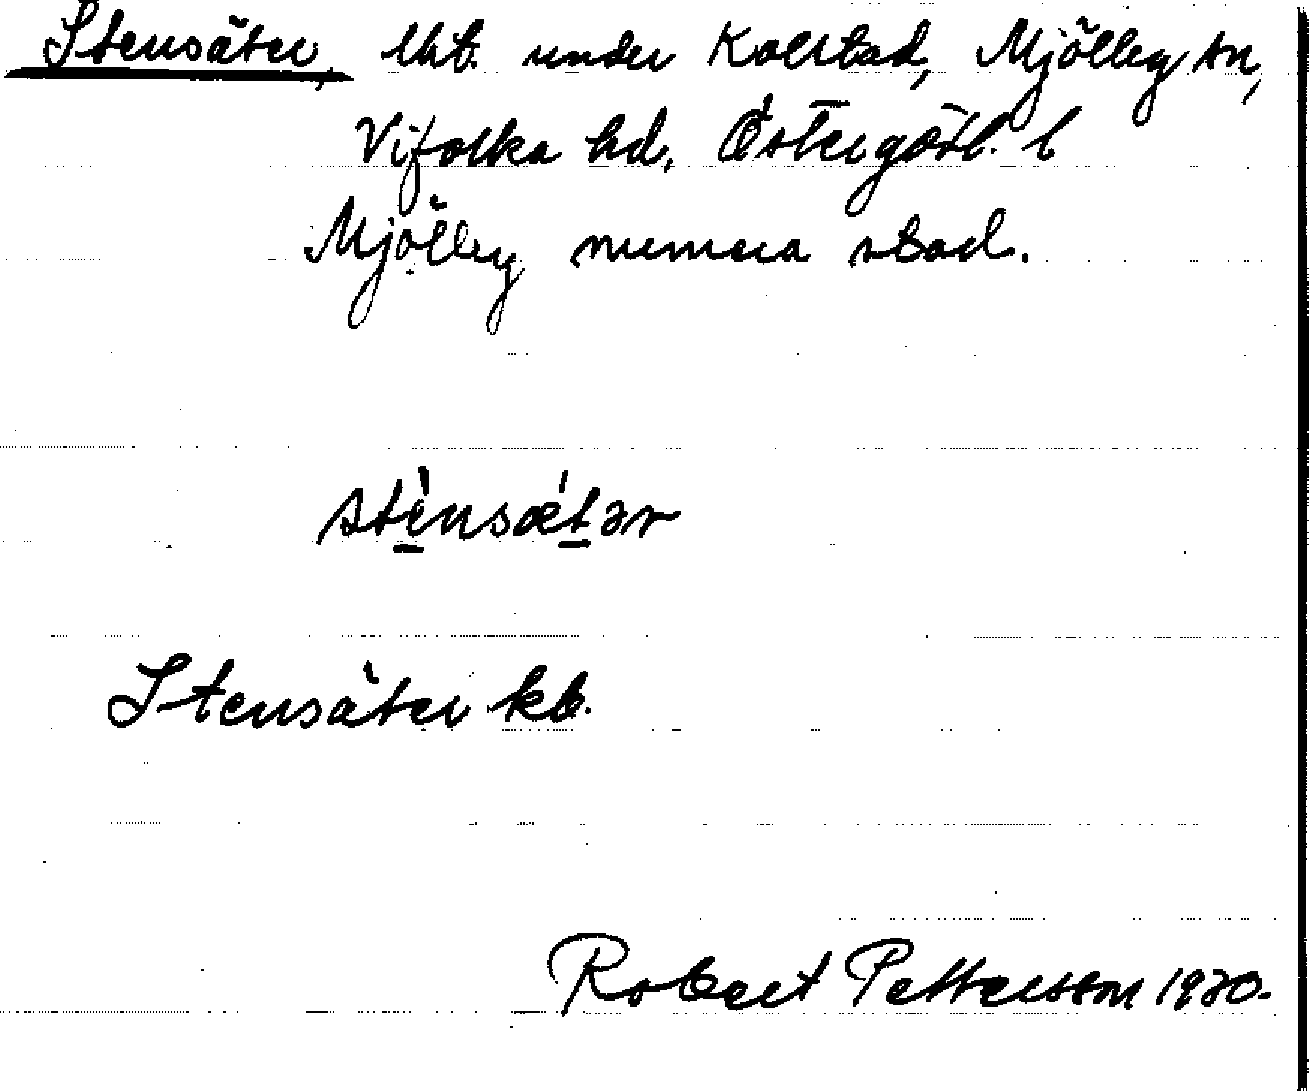 Stensäter, lht. under Kolstad, Mjölby sn,
Vifolka hd, Östergötl. l
Mjölby numera stad.
stènsætər
Stensäter kb.
Robert Pettersson 1920.